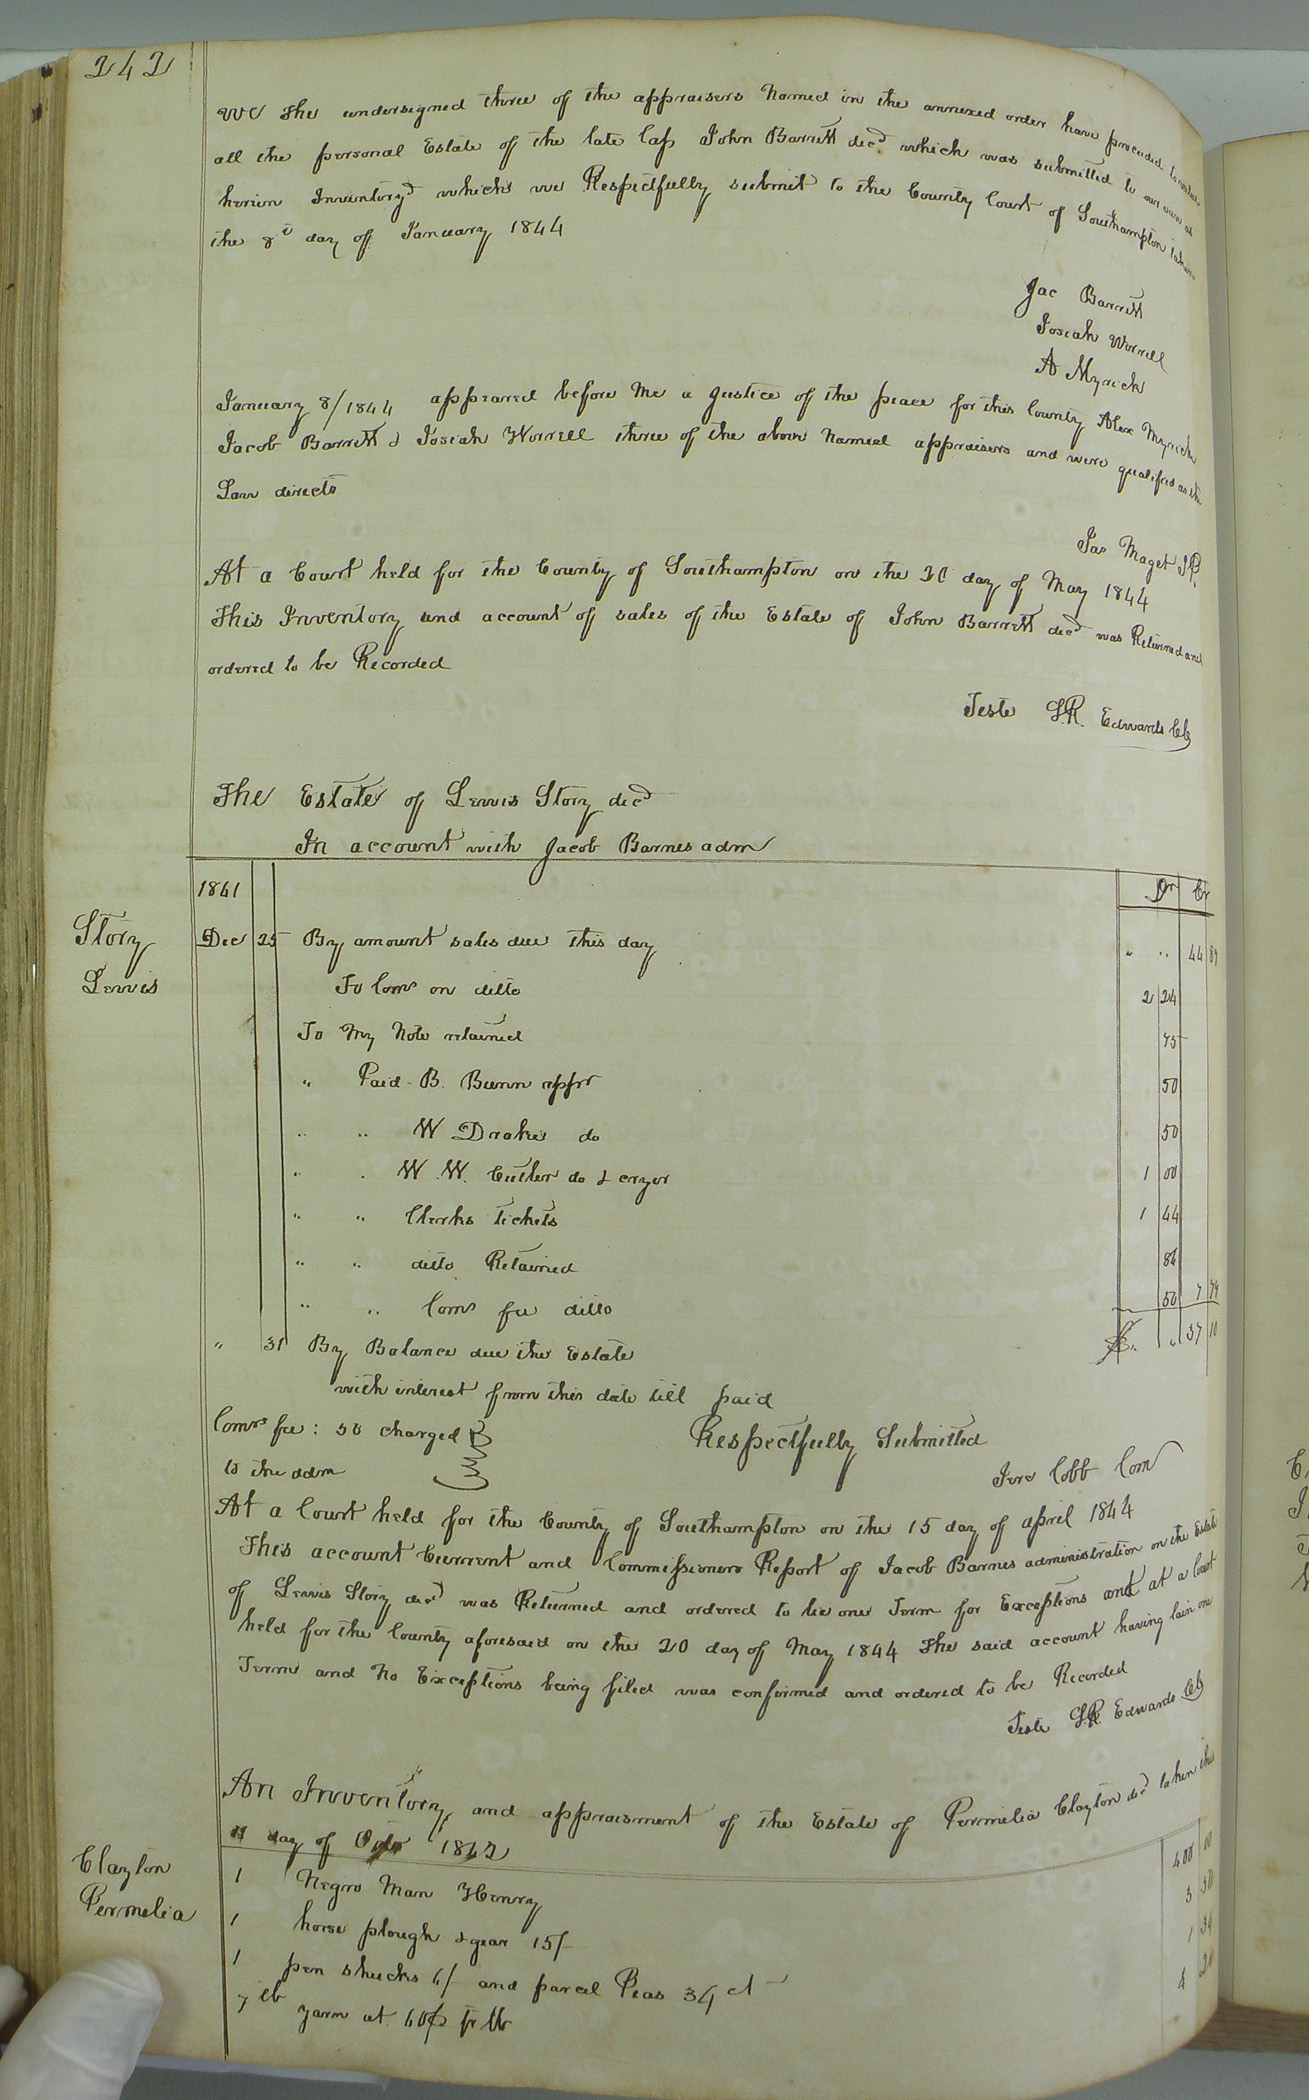 242
We the undersigned three of the appraisers Named in the annexed order have proceeded to
all the personal Estate of the late Cap John Barrett decd which was submitted to our view
herein Inventoryd which we Respectfully submit to the County Court of Southampton
the 8th day of January 1844
Jac Barrett
Josiah Worrell
A Myrick
January 8/1844 appeared before Me a Justice of the peace for this County Alex Myrick
Jacob Barrett & Josiah Worrell three of the above Named appraisers and were qualified as the
Law directs
Jas Maget JP.
At a Court held for the County of Southampton on the 20 day of May 1844
This Inventory and account of sales of the Estate of John Barrett decd was Returned and
ordered to be Recorded
Teste L.R. Edwards Clk
The Estate of Lewis Story decd
In account with Jacob Barnes adm
1841 Dr Cr
Story
Lewis
Dec 25 By amount sales due this day " " 44 89
To Coms on ditto 2 24
To My Note retained 75
" Paid B. Bunn appr 50
" " W Drake do 50
" " W. W. Cutler do & cryor 1 00
" " Clerks tickets 1 44
" " ditto Retained 86
" " Coms fee ditto 50 7 79
" 31 By Balance due the Estate " 37 10
with interest from this date till paid
Coms fee : 50 charged
to the adm
Respectfully Submitted
Jere Cobb Com
At a Court held for the County of Southampton on the 15 day of april 1844
This account Current and Commissioners Report of Jacob Barnes administration on the Estate
of Lewis Story decd was Returned and ordered to lie one Term for Exceptions and at a Court
held for the County aforesaid on the 20 day of May 1844 The said account having lain one
Term and No Exceptions being filed was confirmed and ordered to be Recorded
Teste L.R. Edwards Clk
An Inventory and appraisment of the Estate of Permelia Clayton decd taken this
11 day of Octo 1842
Clayton
Permelia
1 Negro Man Henry 400 00
1 horse plough & gear 15/ 3 50
1 pen shucks 6/ and parcel Peas 34 ct 1 34
7 lb yarn at 60¢ pr lb 4 20